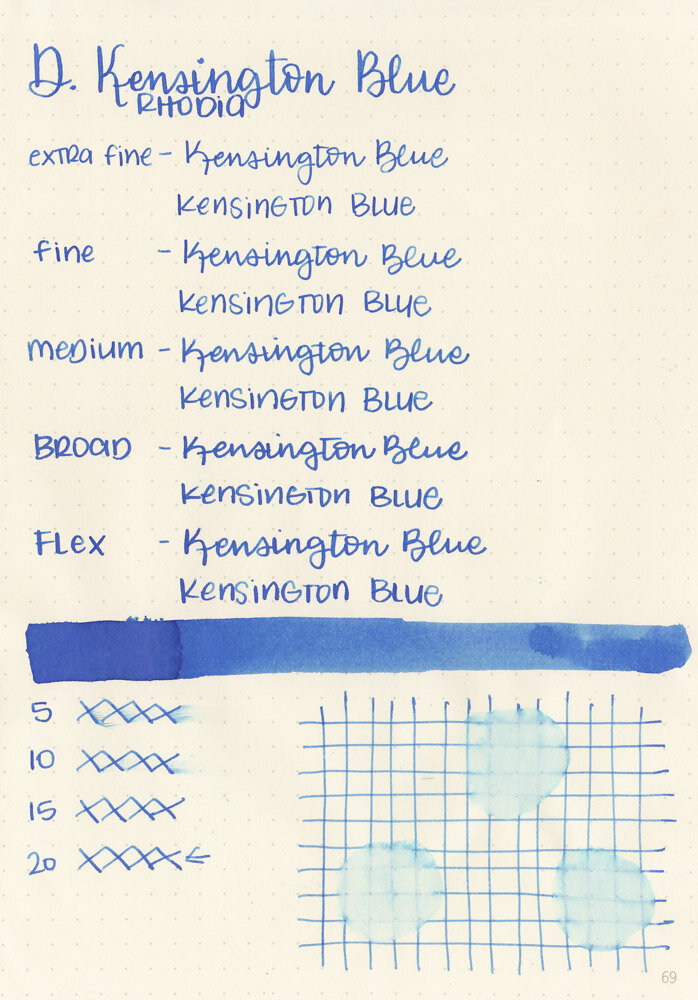 D. Kensington Blue
RHODIA
extra fine - Kensington Blue
KENSINGTON BLUE
fine - Kensington Blue
KENSINGTON BLUE
MEDIUM - Kensington Blue
KENSINGTON BLUE
BROAD - Kensington Blue
KENSINGTON BLUE
FLEX - Kensington Blue
KENSINGTON BLUE
5 XXXX
10 XXXX
15 XXXX
20 XXXX ←
69